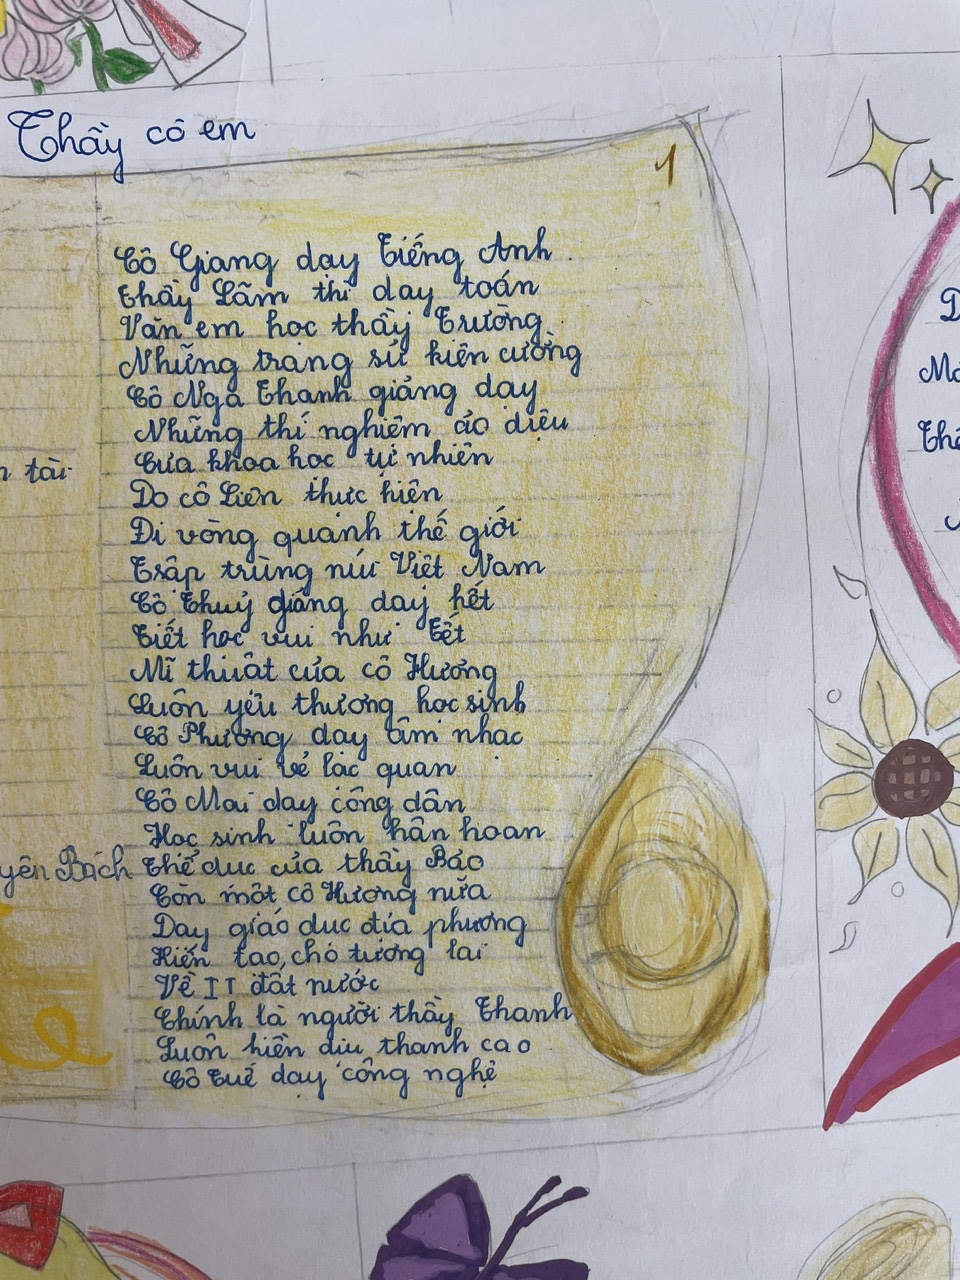 Thầy cô em
1
Cô Giang dạy Tiếng Anh
Thầy Lãm thì dạy toán
Văn em học thầy Trường
Những trang sử kiên cường
Cô Nga Thanh giảng dạy
Những thí nghiệm ảo diệu
Của khoa học tự nhiên
n tài
Do cô Liên thực hiện
Đi vòng quanh thế giới
Trập trùng núi Việt Nam
Cô Thuỷ giảng dạy hết
Tiết học vui như Tết
Mĩ thuật của cô Hương
Luôn yêu thương học sinh
Cô Phương dạy âm nhạc
Luôn vui vẻ lạc quan
Cô Mai dạy công dân
Học sinh luôn hân hoan
yên Bách
Thể dục của thầy Bảo
Còn một cô Hương nữa
Dạy giáo dục địa phương
Kiến tạo, cho tương lai
Về IT đất nước
Chính là người thầy Thanh
Luôn hiền dịu thanh cao
Cô Tuế dạy công nghệ
D
Mó
Thê